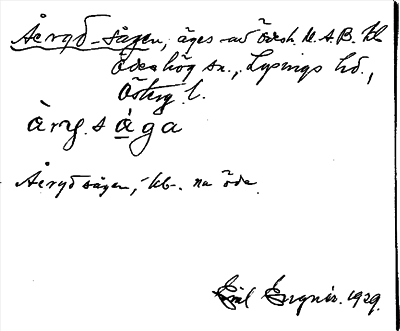 Åeryd-sågen, äges av Ödesh. M. A. B. kl
Ödeshög sn., Lysings hd.,
Österg. l.
àry. s à̱ga
Åerydsågen, kb. na öde
Emil Engnér. 1929.